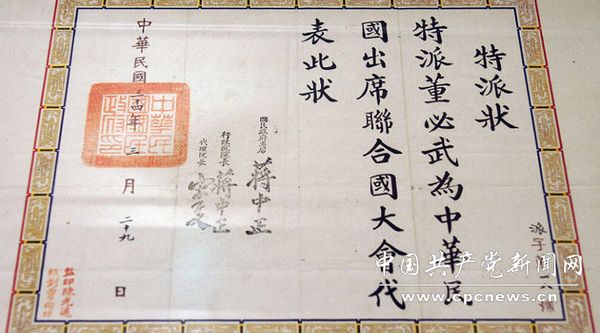 特派狀
特派董必武為中華民
國出席聯合國大會代
表此狀
國民政府主席 蔣中正
行政院院長 蔣中正
代理院長 宋子文
中華民國三十四年三月二十九日
中華民
國國民
政府印
派字 六號
監印陳光遠
校對曾伯猷
中国共产党新闻网
www.cpcnews.cn